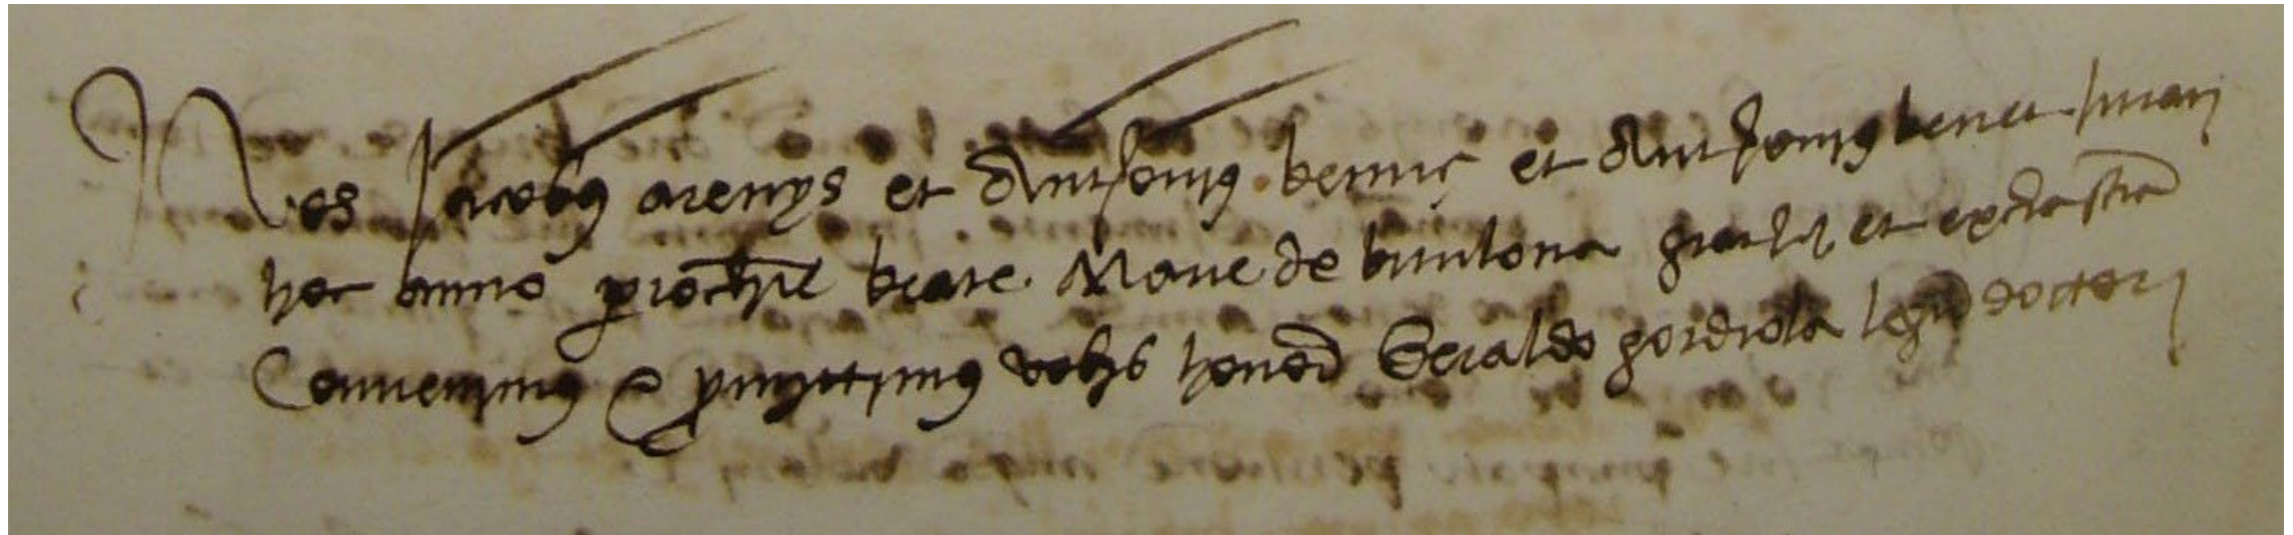 Nos Jacobus arenys et Anthonius bennic et Anthonius benet jurati
hoc anno parrochie beate Marie de bunlona gratis et ex certa scientia
Convenimus & promittimus vobis honor Geraldo gordiola legum doctori